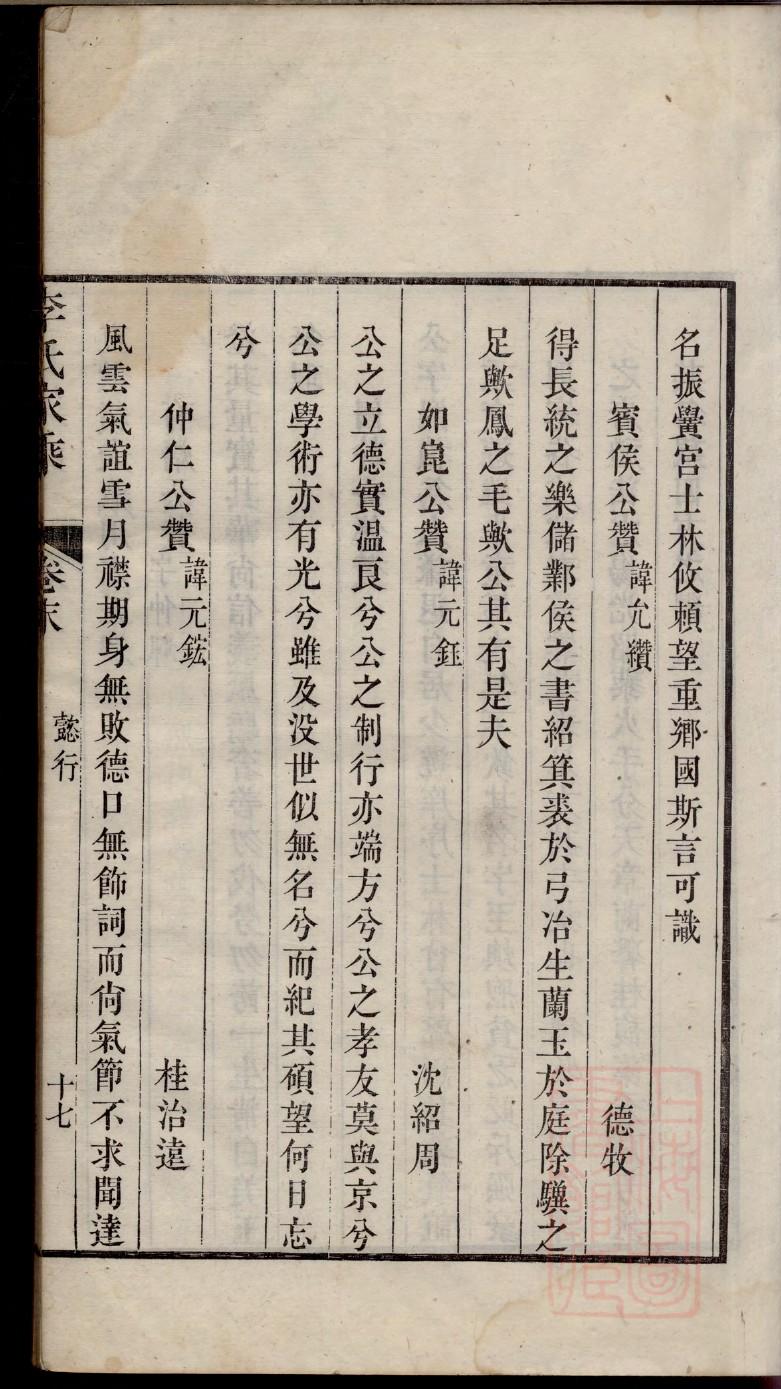 名振黌宫士林攸賴望重鄉國斯言可識
賓侯公贊 諱允纘 德牧
得長統之樂儲鄴侯之書紹箕裘於弓冶生蘭玉於庭除驥之
足歟鳳之毛歟公其有是夫
如崑公贊 諱元鈺 沈紹周
公之立德實溫良兮公之制行亦端方兮公之孝友莫與京兮
公之學術亦有光兮雖及没世似無名兮而紀其碩望何日忘
兮
仲仁公贊 諱元鋐 桂治遠
風雲氣誼雪月襟期身無敗德口無飾詞而尙氣節不求聞達
李氏家乘 卷末 懿行 十七